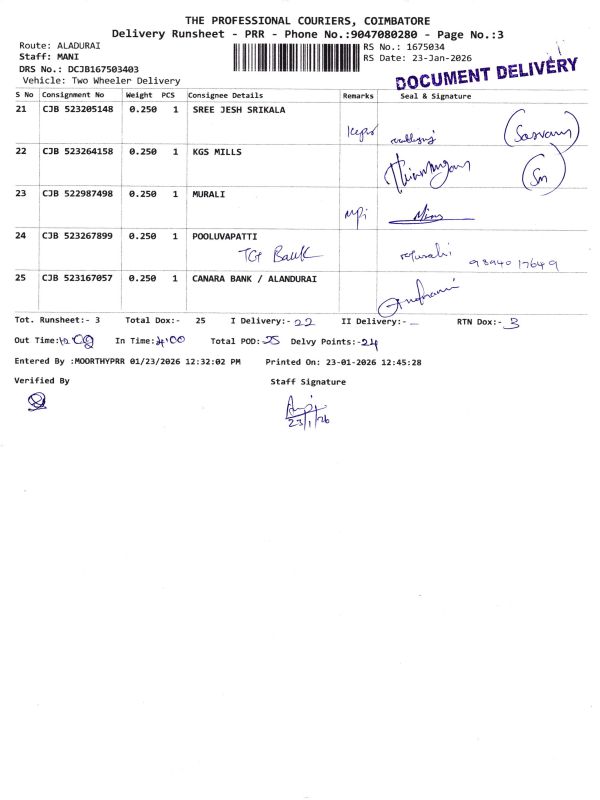 THE PROFESSIONAL COURIERS, COIMBATORE
Delivery Runsheet - PRR - Phone No.:9047080280 - Page No.:3
Route: ALADURAI
Staff: MANI
DRS No.: DCJB167503403
Vehicle: Two Wheeler Delivery
RS No.: 1675034
RS Date: 23-Jan-2026
DOCUMENT DELIVERY
S No Consignment No Weight PCS Consignee Details Remarks Seal & Signature
21 CJB 523205148 0.250 1 SREE JESH SRIKALA
22 CJB 523264158 0.250 1 KGS MILLS
23 CJB 522987498 0.250 1 MURALI
24 CJB 523267899 0.250 1 POOLUVAPATTI
98940 17649
25 CJB 523167057 0.250 1 CANARA BANK / ALANDURAI
Tot. Runsheet:- 3 Total Dox:- 25 I Delivery:- 22 II Delivery:- RTN Dox:- 3
Out Time: In Time: 4:00 Total POD: 25 Delvy Points:- 24
Entered By :MOORTHYPRR 01/23/2026 12:32:02 PM Printed On: 23-01-2026 12:45:28
Verified By Staff Signature
23/1/26